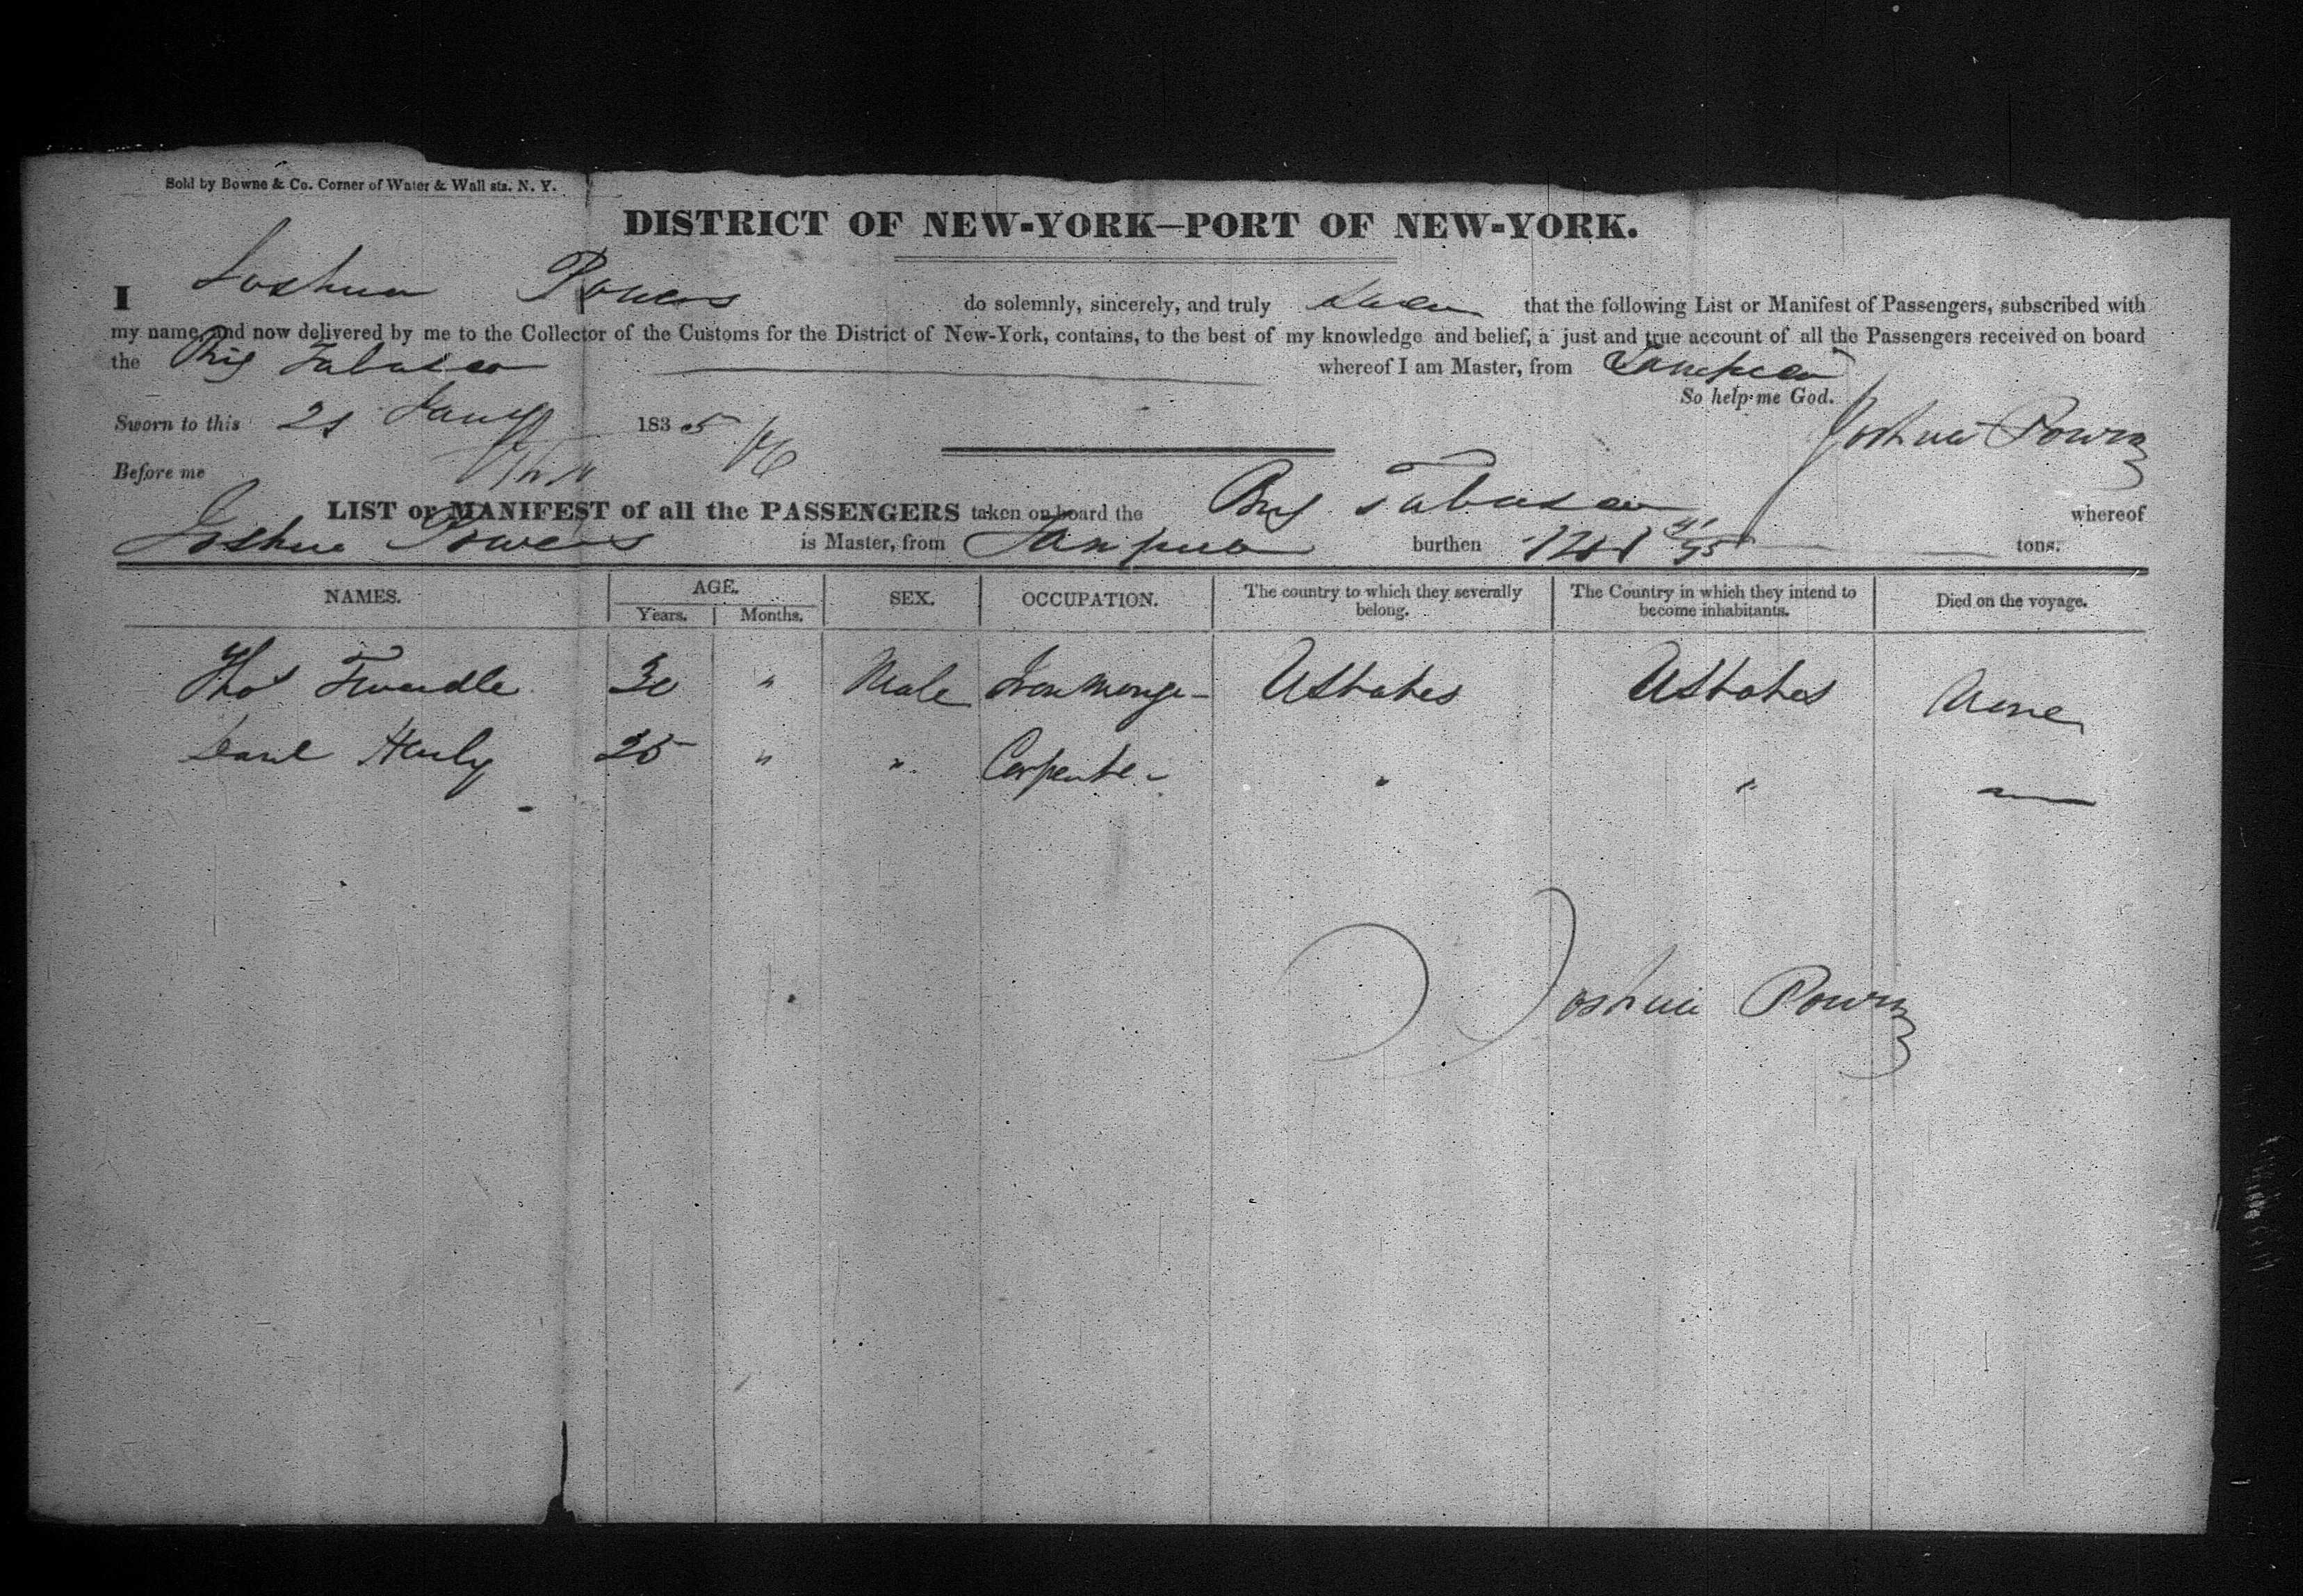 Sold by Bowne & Co. Corner of Water & Wall sts. N. Y.
DISTRICT OF NEW-YORK—PORT OF NEW-YORK.
I Joshua Powers do solemnly, sincerely, and truly swear that the following List or Manifest of Passengers, subscribed with
my name, and now delivered by me to the Collector of the Customs for the District of New-York, contains, to the best of my knowledge and belief, a just and true account of all the Passengers received on board
the Brig Tabasco whereof I am Master, from Tampico
So help me God.
Sworn to this 21 Jany 1835 Joshua Powers
Before me
LIST or MANIFEST of all the PASSENGERS taken on board the Brig Tabasco whereof
Joshua Powers is Master, from Tampico burthen tons.
NAMES. AGE. SEX. OCCUPATION. The country to which they severally belong. The Country in which they intend to become inhabitants. Died on the voyage.
Years. Months.
Thos 30 " Male Ironmonger UStates UStates None
Danl Healy 25 " " Carpenter " " —
Joshua Powers